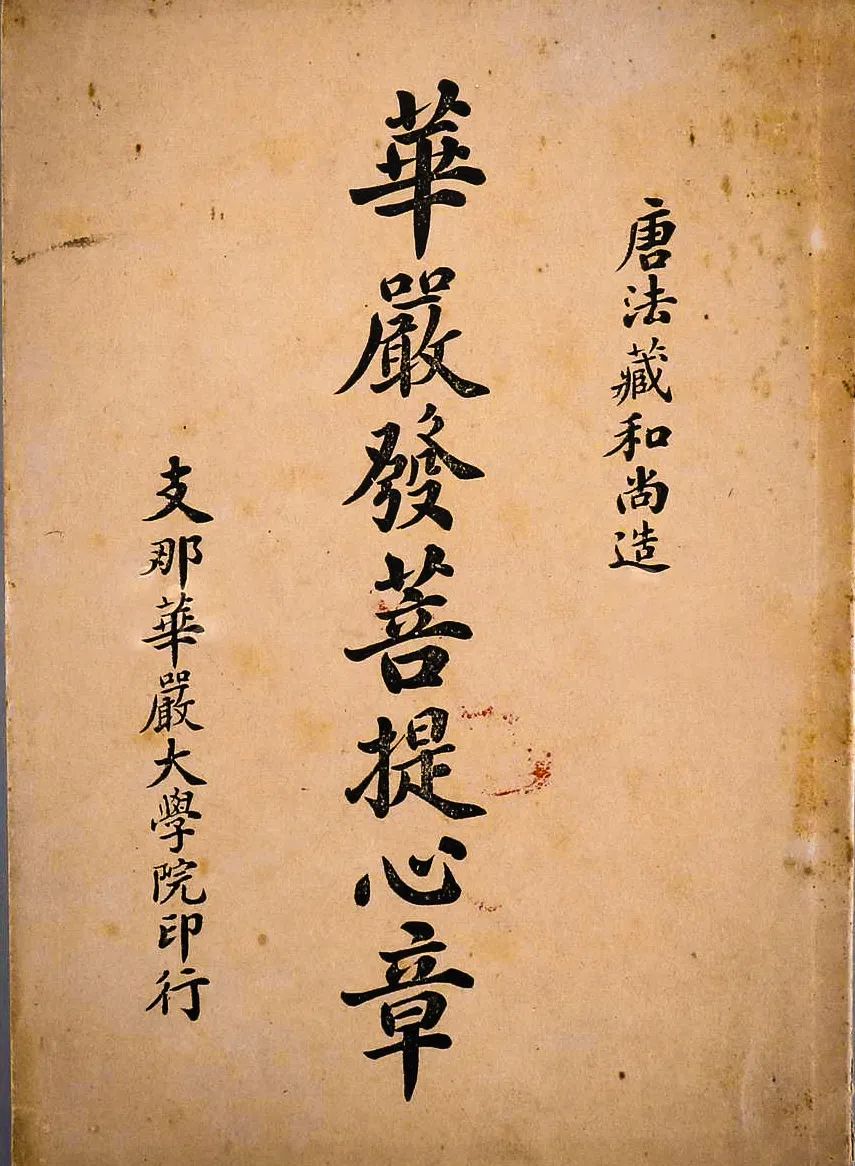 唐法藏和尚造
華嚴發菩提心章
支那華嚴大學院印行